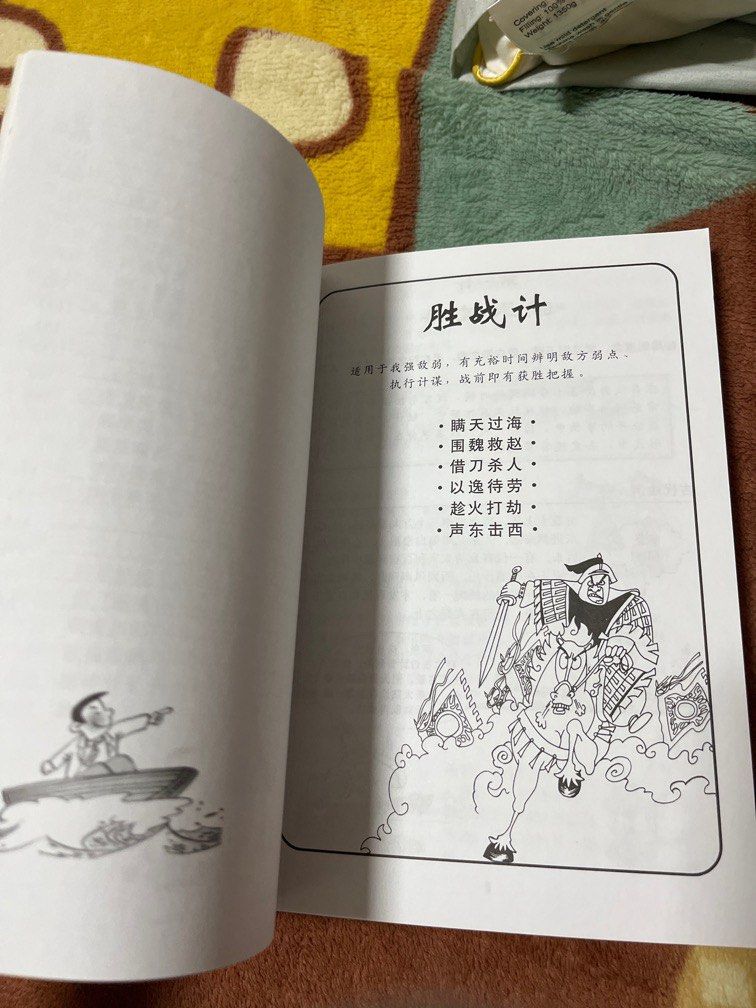 Covering
Filling: 100%
Weight: 1350g
胜战计
适用于我强敌弱，有充裕时间辨明敌方弱点、
执行计谋，战前即有获胜把握。
·瞒天过海·
·围魏救赵·
·借刀杀人·
·以逸待劳·
·趁火打劫·
·声东击西·